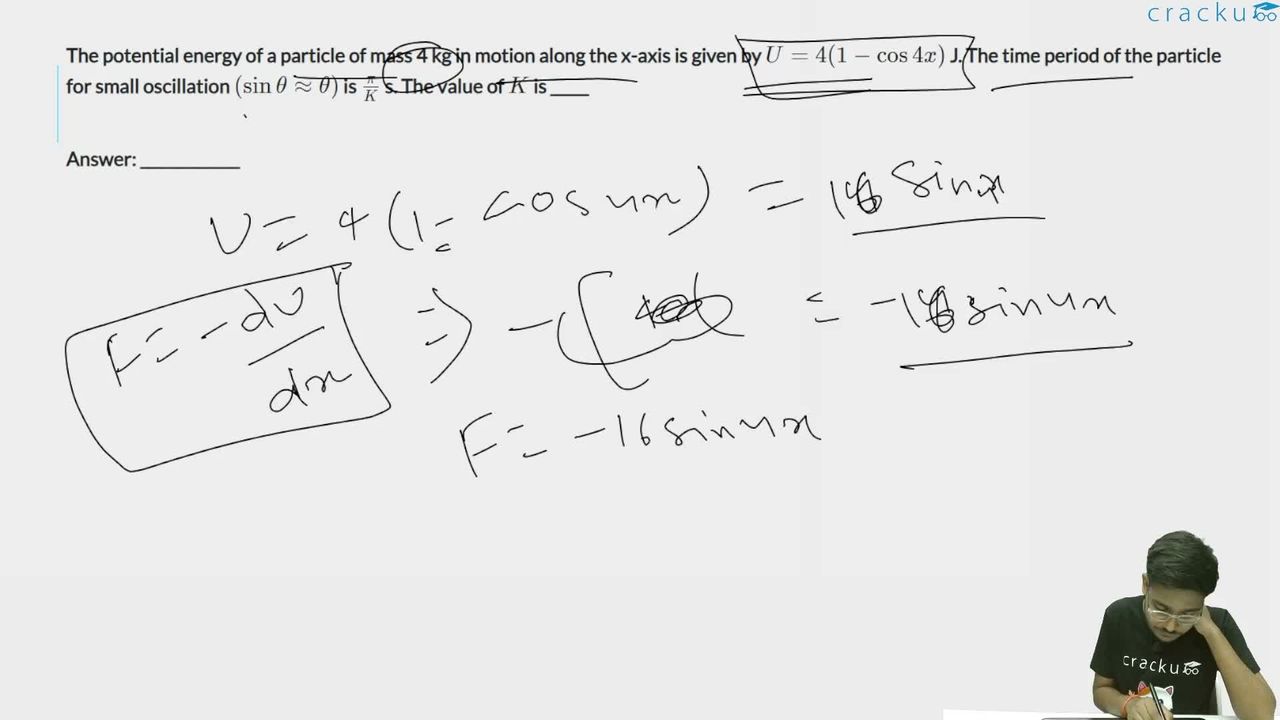 cracku
The potential energy of a particle of mass 4 kg in motion along the x-axis is given by U = 4(1 − cos 4x) J. The time period of the particle
for small oscillation (sin θ ≈ θ) is π/K s. The value of K is ____
Answer: __________
U = 4 (1 - cos 4x) = 16 sin x
F = -dU/dx ⇒ -[ = -16 sin 4x
F = -16 sin 4x
cracku